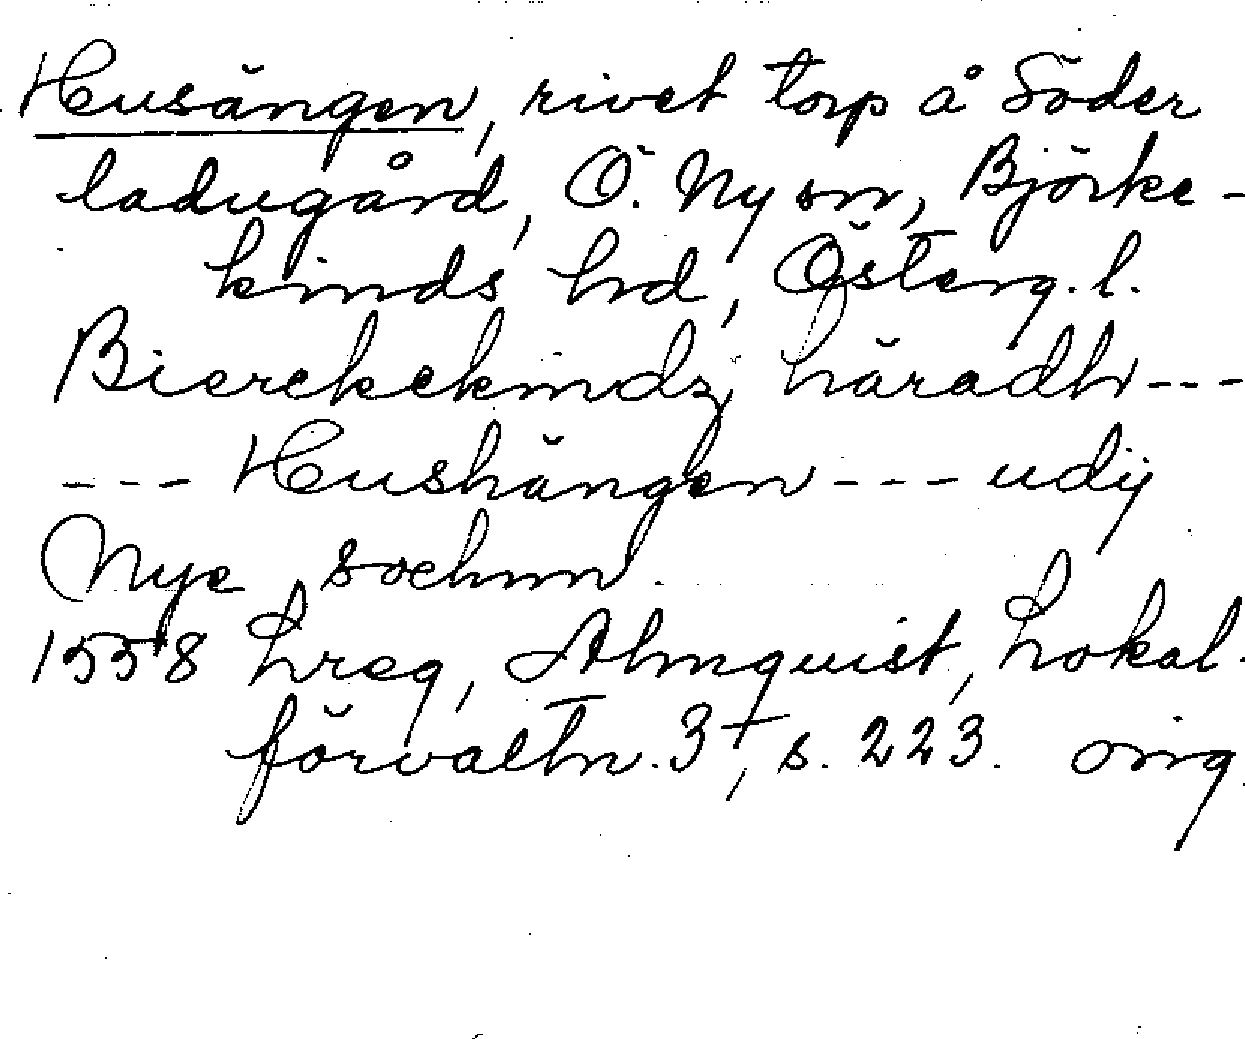 Husängen, rivet torp å Söder
ladugård, Ö. Ny sn, Björke-
kinds hd, Österg. l.
Bierekekindz häradh ---
--- Hushängen --- udij
Nye sochnn.
1558 hreg, Almquist, Lokal-
förvaltn. 3†, s. 223. orig